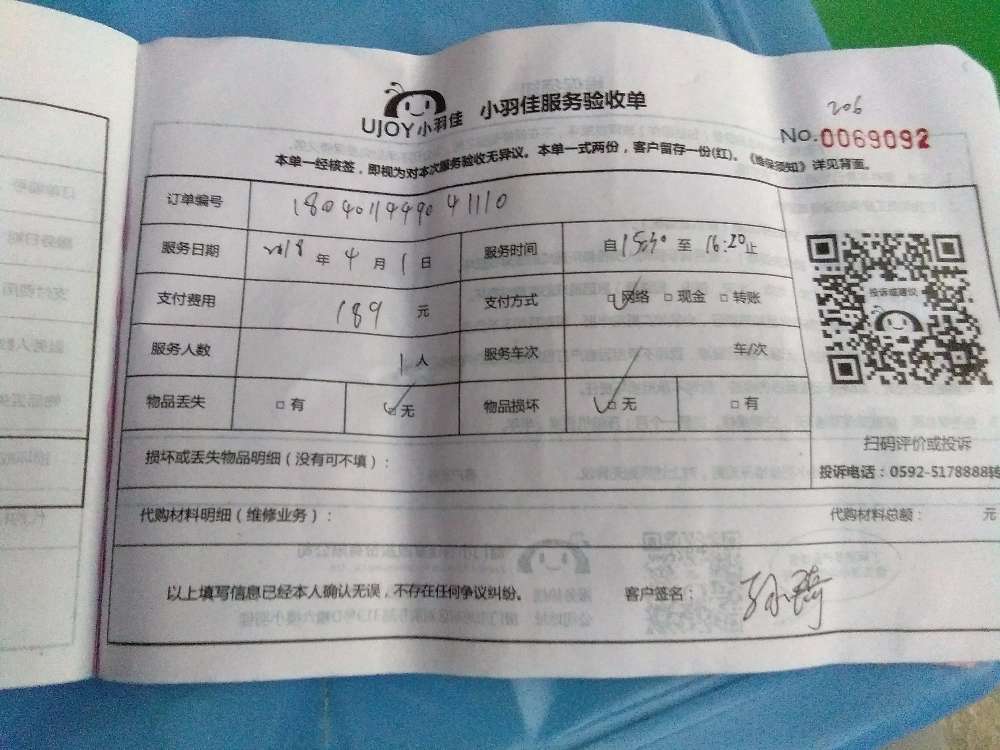 206
UJOY小羽佳 小羽佳服务验收单
No.0069092
本单一经核签，即视为对本次服务验收无异议。本单一式两份，客户留存一份(红)。《维保须知》详见背面。
订单编号 1804011449041110
服务日期 2018 年 4 月 1 日 服务时间 自 15:30 至 16:20 止
支付费用 189 元 支付方式 ☑网络 □现金 □转账
投诉或建议
服务人数 1 人 服务车次 车/次
物品丢失 □有 ☑无 物品损坏 ☑无 □有
扫码评价或投诉
损坏或丢失物品明细（没有可不填）：
投诉电话：0592-5178888转
代购材料明细（维修业务）： 代购材料总额： 元
以上填写信息已经本人确认无误，不存在任何争议纠纷。 客户签名：